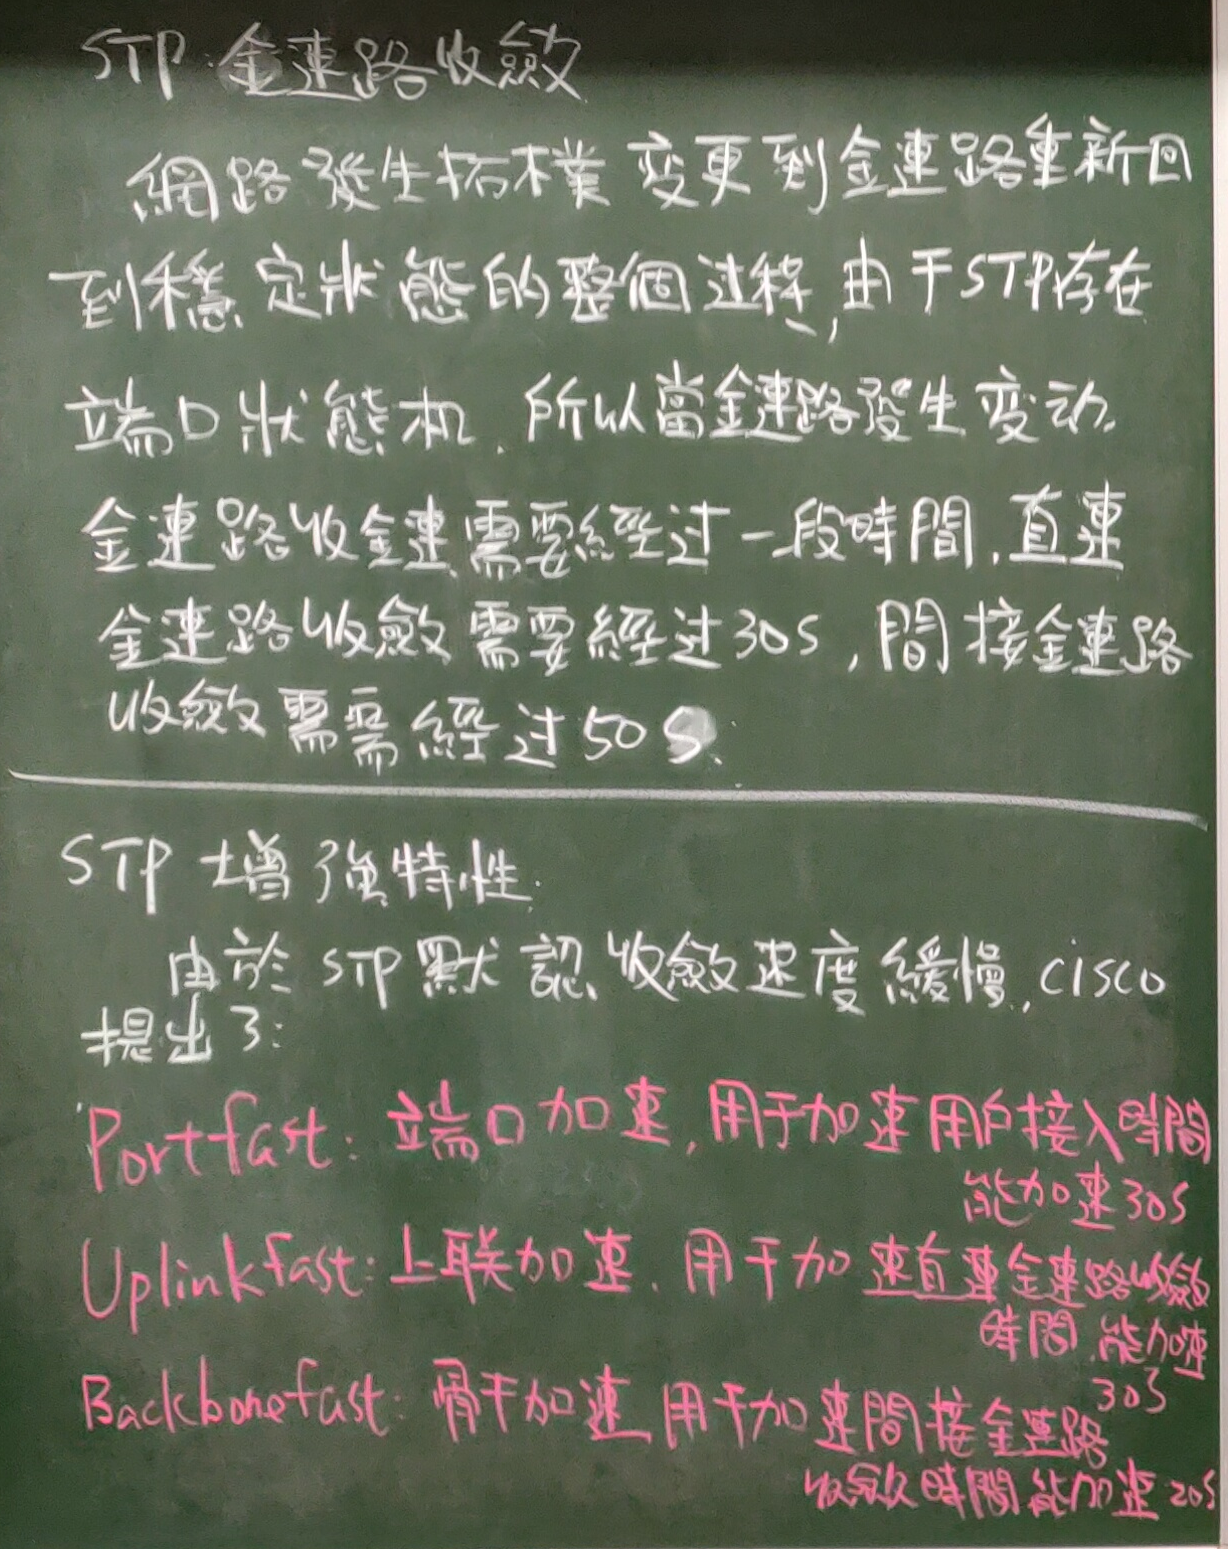 STP:鏈路收斂
網路發生拓樸变更到鏈路重新回
到穩定狀態的整個过程,由于STP存在
端口狀態机,所以當鏈路發生变动,
鏈路收鏈需要經过一段時間,直連
鏈路收斂需要經过30S,間接鏈路
收斂需需經过50S.
STP增強特性:
由於STP默認收斂速度緩慢,CISCO
提出了:
Portfast:端口加速,用于加速用户接入時間
能加速30S
Uplinkfast:上联加速,用于加速直連鏈路收斂
時間,能加速
30S
Backbonefast:骨干加速,用于加速間接鏈路
收斂時間能加速20S